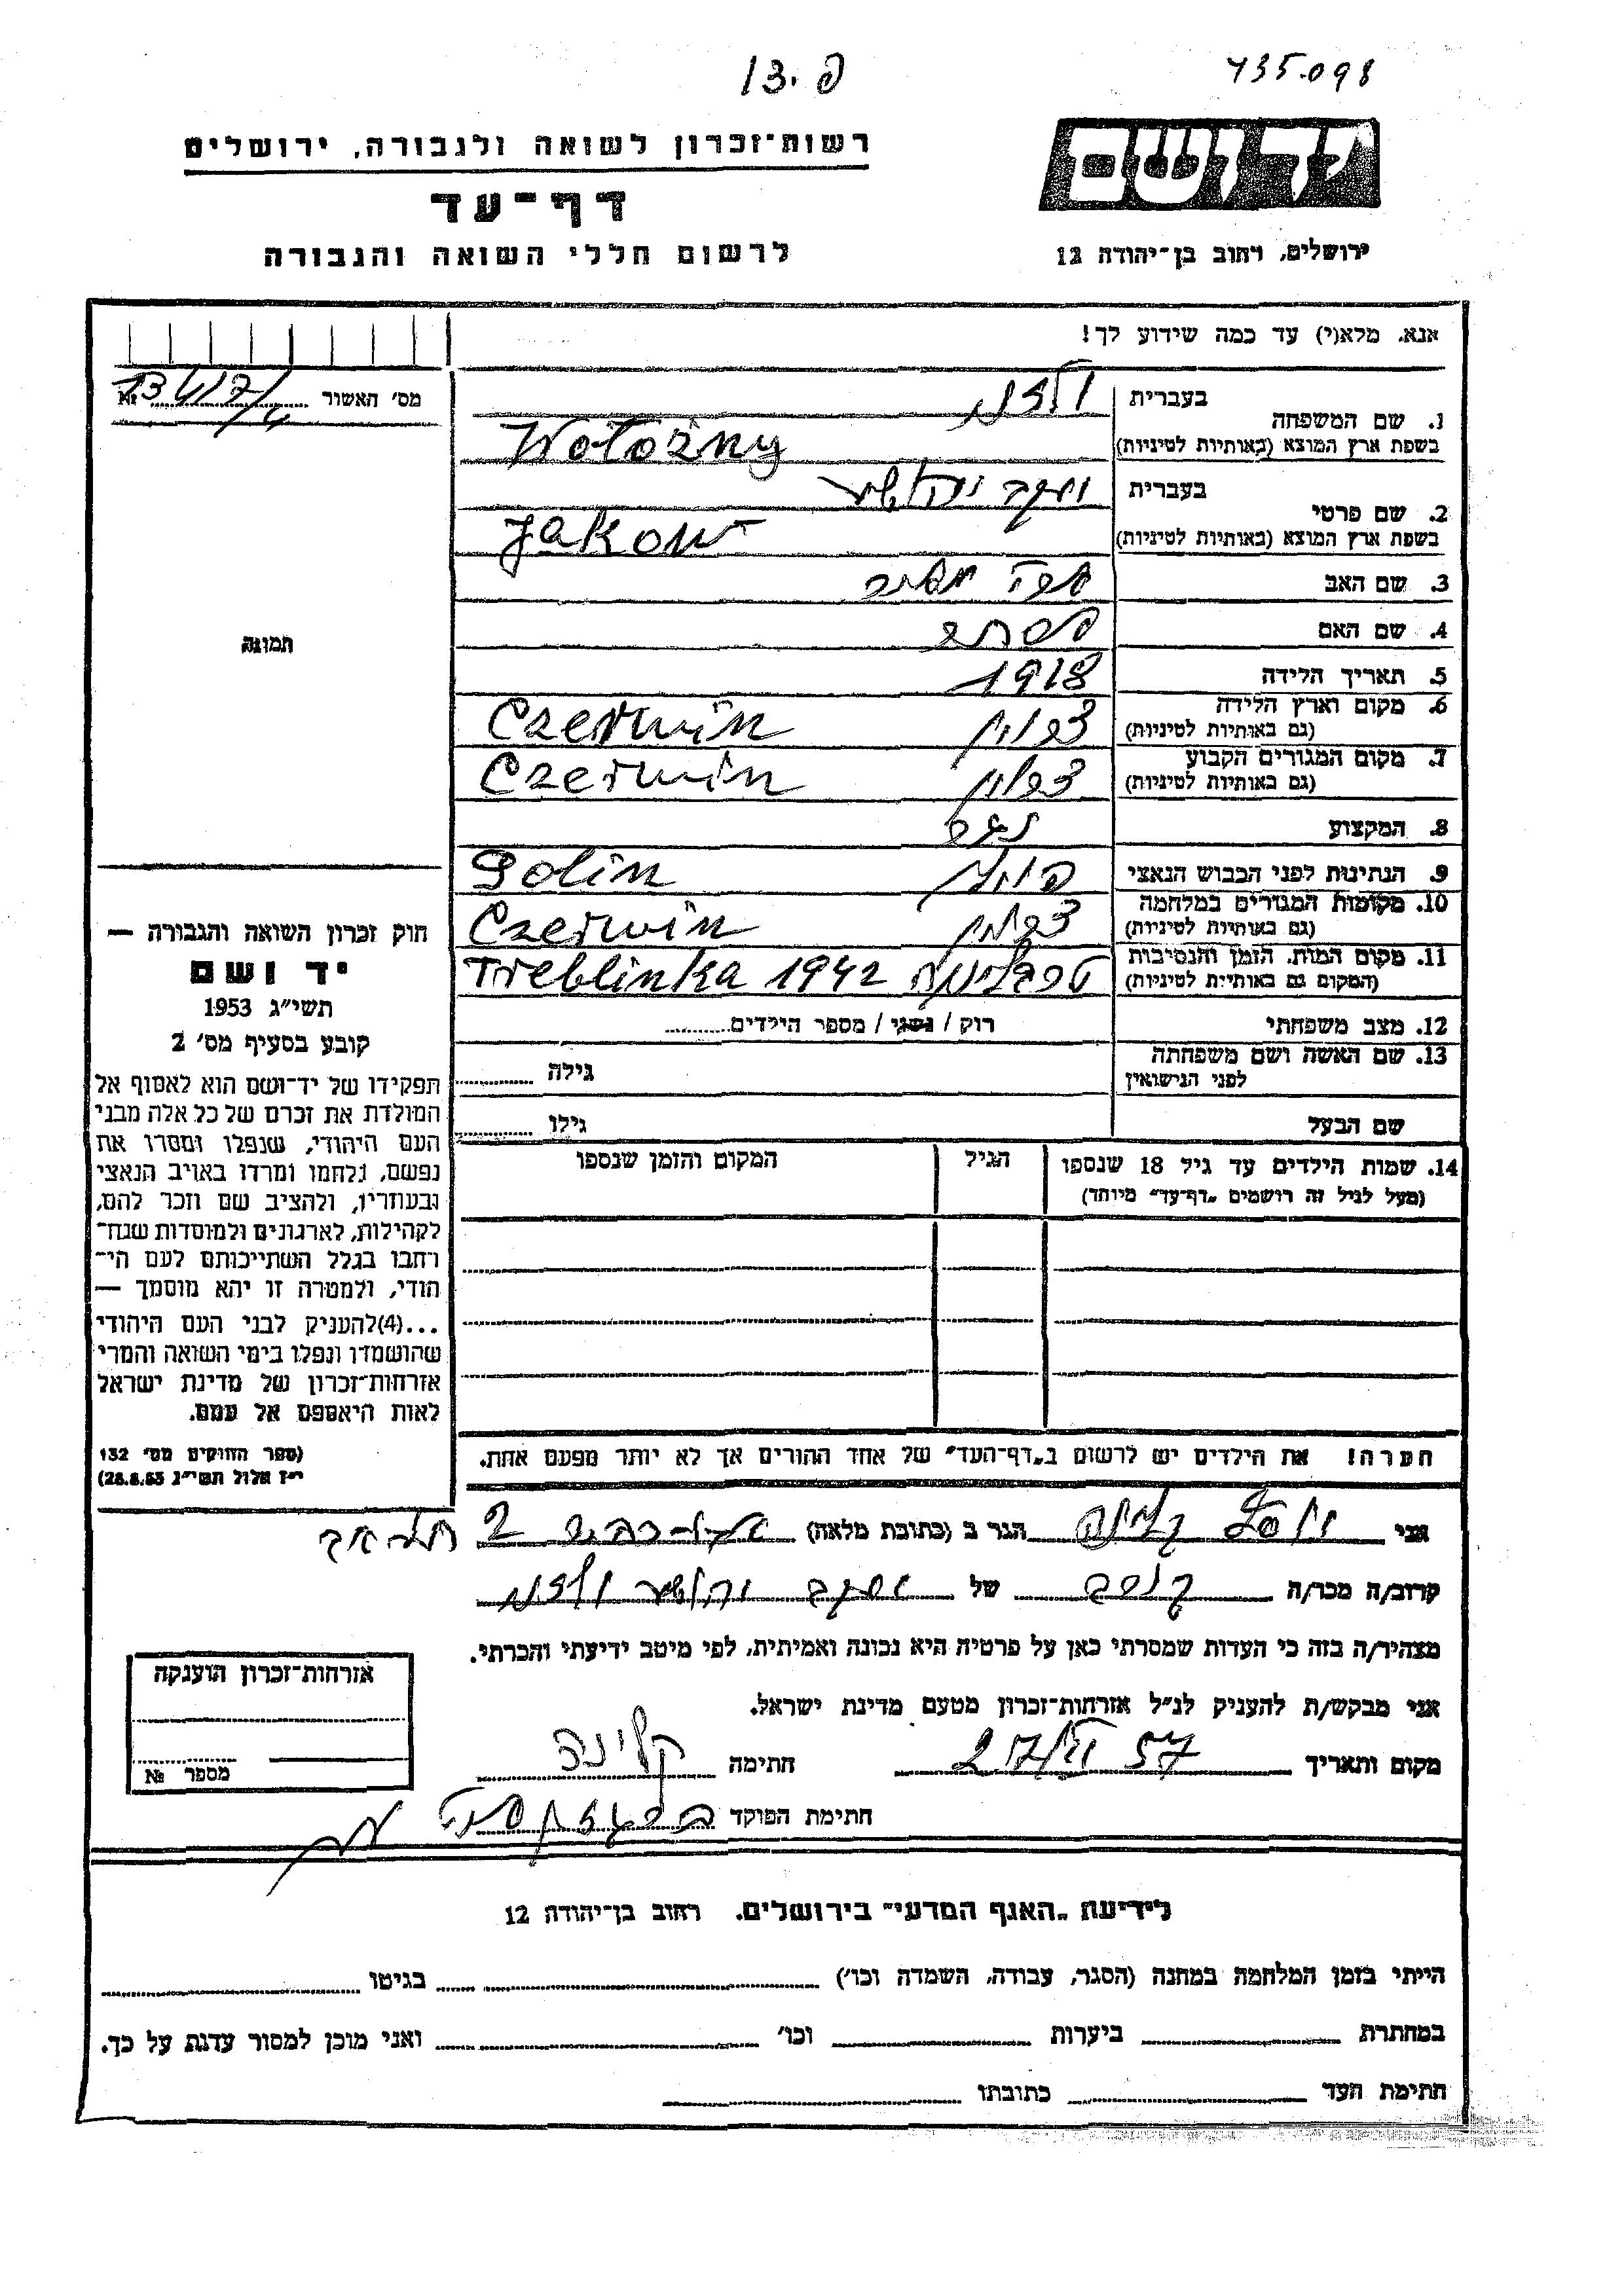 פ. 13
435.098
רשות־זכרון לשואה ולגבורה, ירושלים
יד ושם
דף־עד
לרשום חללי השואה והגבורה
ירושלים, רחוב בן־יהודה 12
אנא, מלא(י) עד כמה שידוע לך!
מס׳ האשור №
1. שם המשפחה
בעברית
בשפת ארץ המוצא (באותיות לטיניות) Wołożny
2. שם פרטי
בעברית יעקב
בשפת ארץ המוצא (באותיות לטיניות) Jakow
3. שם האב משה
4. שם האם אסתר
5. תאריך הלידה 1918
6. מקום וארץ הלידה
(גם באותיות לטיניות) Czerwin
7. מקום המגורים הקבוע
(גם באותיות לטיניות) Czerwin
8. המקצוע
9. הנתינות לפני הכבוש הנאצי פולין Polin
10. מקומות המגורים במלחמה
(גם באותיות לטיניות) Czerwin
11. מקום המות, הזמן והנסיבות
(המקום גם באותיות לטיניות) טרבלינקה Treblinka 1942
12. מצב משפחתי רוק / נשוי / מספר הילדים
13. שם האשה ושם משפחתה
לפני הנישואין גילה
שם הבעל גילו
14. שמות הילדים עד גיל 18 שנספו
(מעל לגיל זה רושמים „דף־עד” מיוחד)
הגיל
המקום והזמן שנספו
הערה! את הילדים יש לרשום ב„דף־העד” של אחד ההורים אך לא יותר מפעם אחת.
תמונה
חוק זכרון השואה והגבורה —
יד ושם
תשי״ג 1953
קובע בסעיף מס׳ 2
תפקידו של יד־ושם הוא לאסוף אל
המולדת את זכרם של כל אלה מבני
העם היהודי, שנפלו ומסרו את
נפשם, נלחמו ומרדו באויב הנאצי
ובעוזריו, ולהציב שם וזכר להם,
לקהילות, לארגונים ולמוסדות שנח־
רבו בגלל השתייכותם לעם הי־
הודי, ולמטרה זו יהא מוסמך —
...(4)להעניק לבני העם היהודי
שהושמדו ונפלו בימי השואה והמרי
אזרחות־זכרון של מדינת ישראל
לאות היאספם אל עמם.
(ספר החוקים מס׳ 132
י״ז אלול תשי״ג 28.8.53)
אני יוסף קלינה הגר ב (כתובת מלאה) 2 תל אביב
קרוב/ה מכר/ה קרוב של יעקב
מצהיר/ה בזה כי העדות שמסרתי כאן על פרטיה היא נכונה ואמיתית, לפי מיטב ידיעתי והכרתי.
אני מבקש/ת להעניק לנ״ל אזרחות־זכרון מטעם מדינת ישראל.
מקום ותאריך חתימה קלינה
חתימת הפוקד
אזרחות־זכרון הוענקה
מספר №
לידיעת „האגף המדעי” בירושלים, רחוב בן־יהודה 12
הייתי בזמן המלחמה במחנה (הסגר, עבודה, השמדה וכו׳) בגיטו
במחתרת ביערות וכו׳ ואני מוכן למסור עדות על כך.
חתימת העד כתובתו